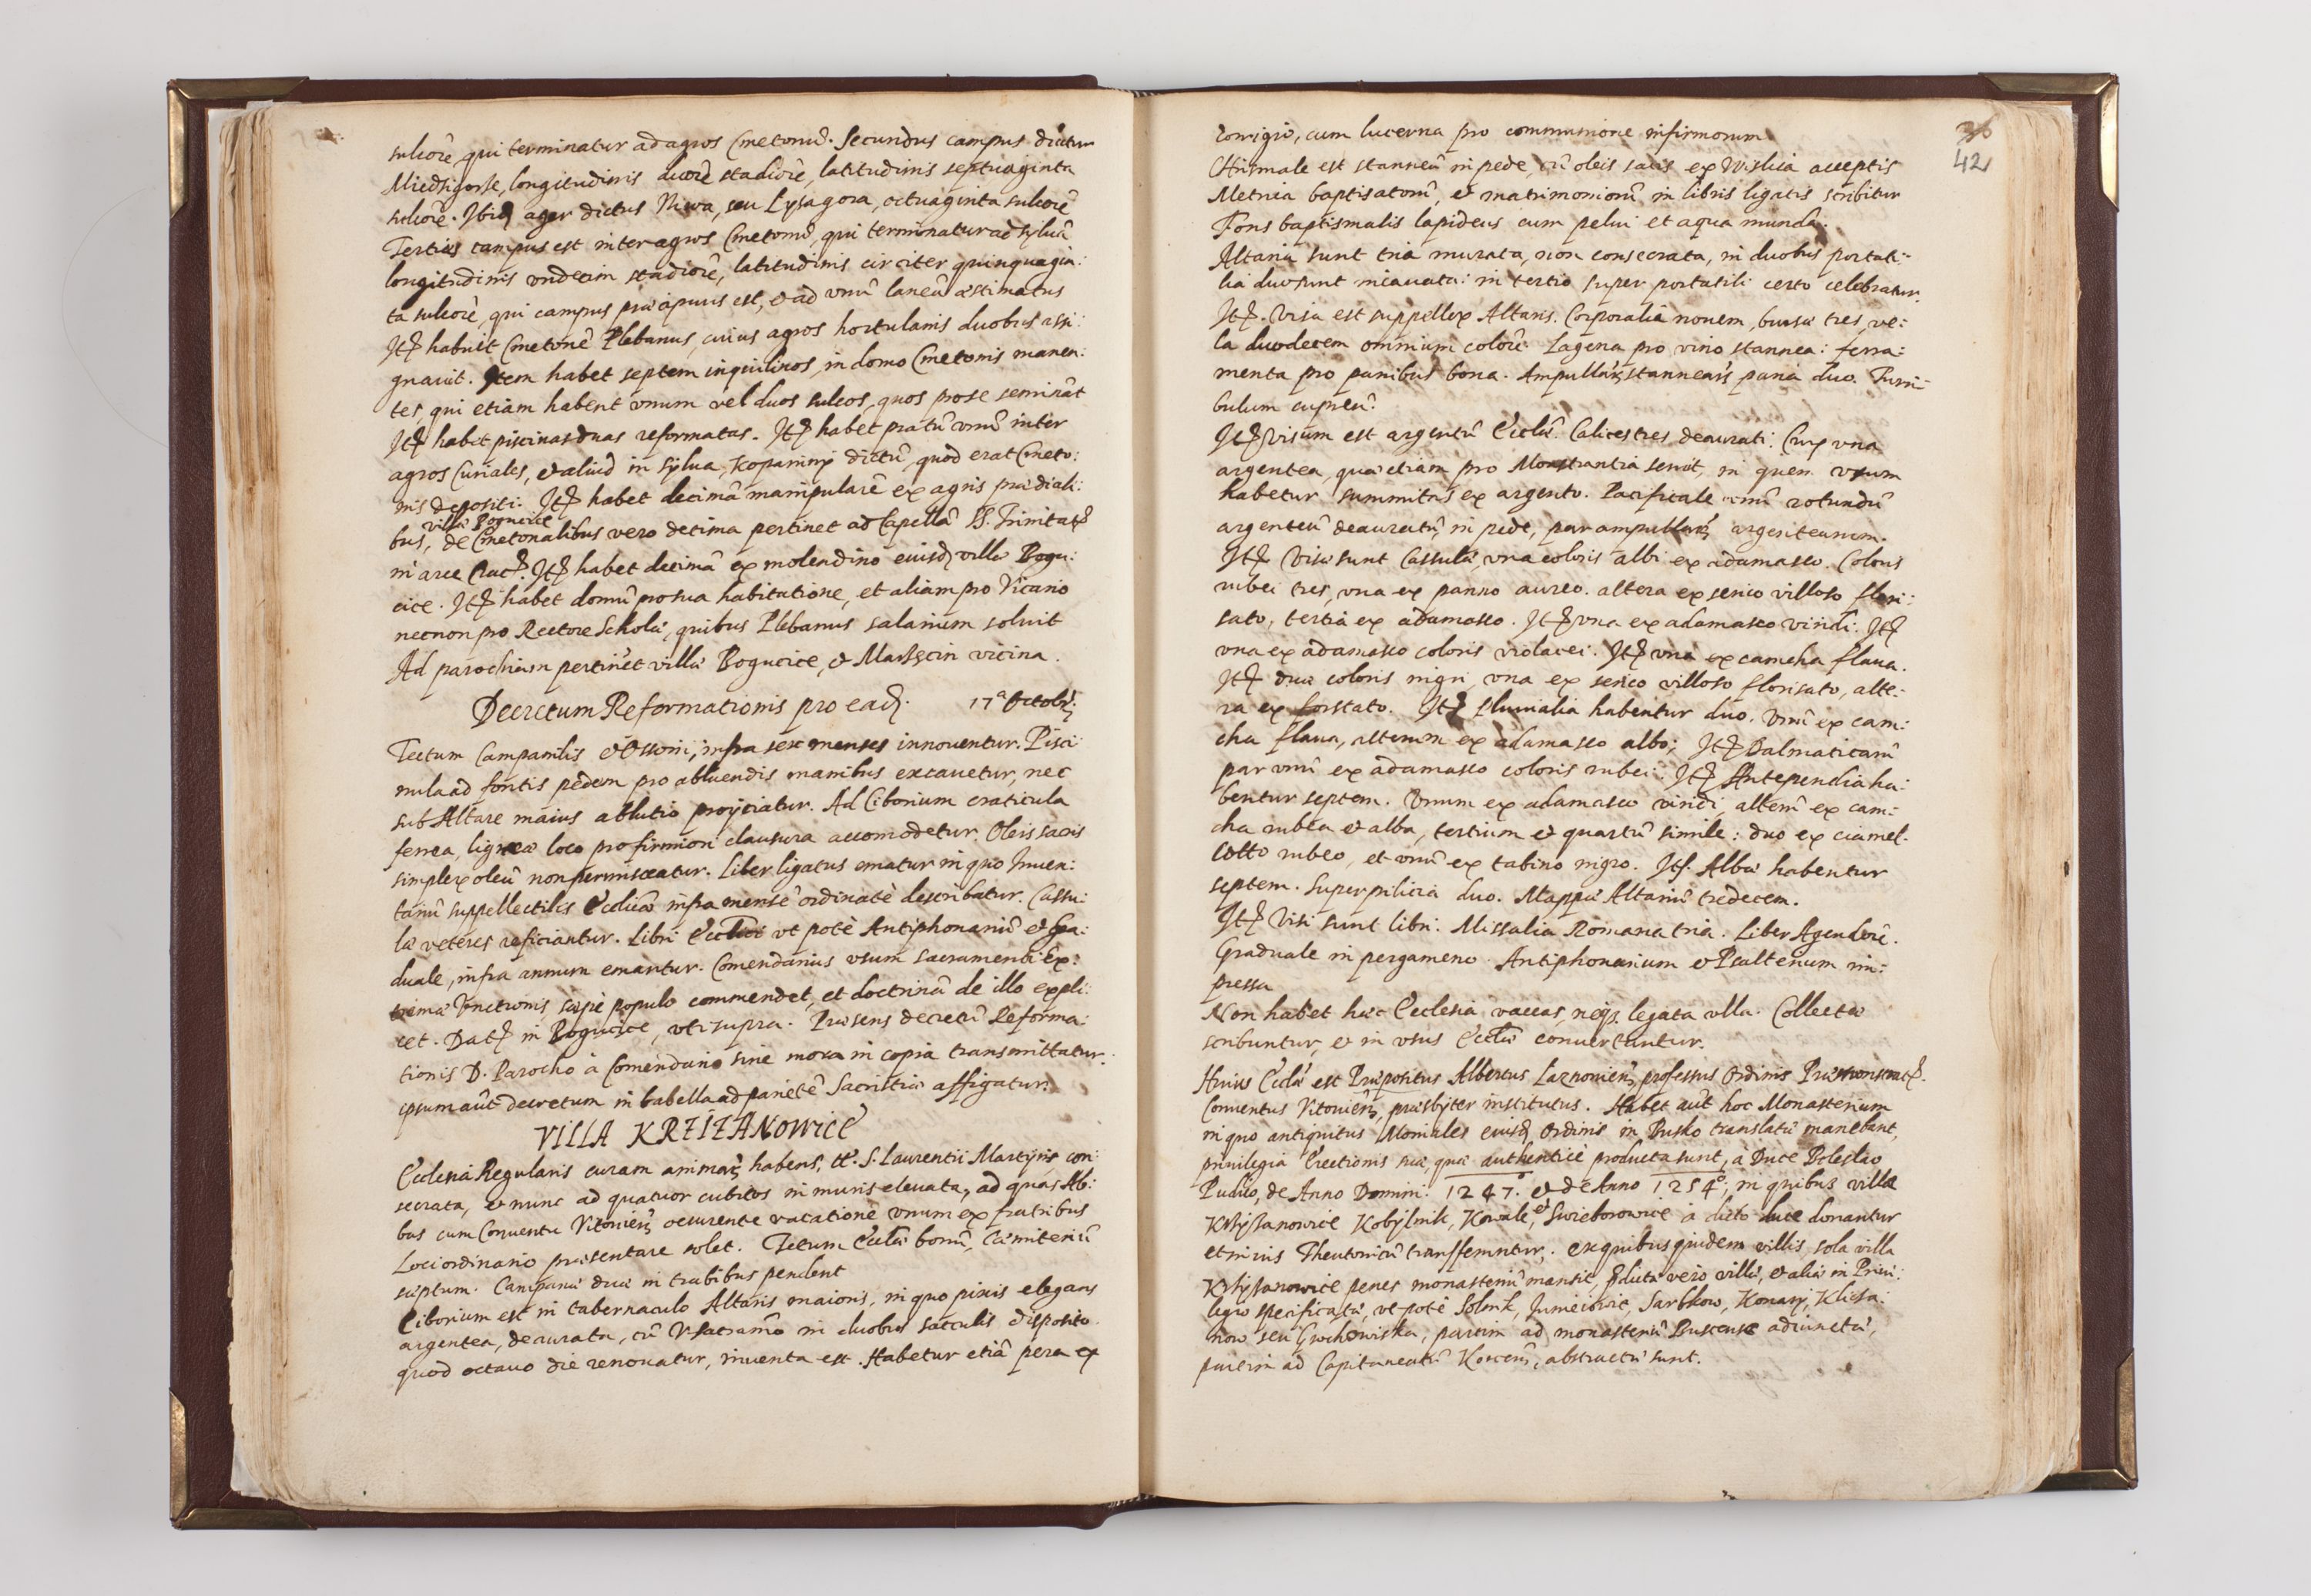 sulcorē, qui terminatur ad agros Cmetonū. Secundus campus dictus
Miedzigorze, longitudinis duorē stadiorē, latitudinis septuaginta
sulcorē. Ibid ager dictus Niwa, seu Lysagora, octuaginta sulcorē
Tertius campus est inter agros Cmetonū, qui terminatur ad syluā
longitudinis vndecim stadiorē, latitudinis circiter quinquagin:
ta sulcorē, qui campus præcipuus est, & ad vnū laneū æstimatus
Itē habuit Cmetonē Plebanus, cuius agros hortulanis duobus assi:
gnauit. Item habet septem inquilinos, in domo Cmetonis manen:
tes, qui etiam habent vnum vel duos sulcos, quos pro se semināt
Itē habet piscinas duas reformatas. Itē habet pratū vnū inter
agros Curiales, & aliud in sylua, Kopaniny dictū, quod erat Cmeto:
nis depositi. Itē habet decimā manipularē ex agris prædiali:
villæ Bogucice
bus, de Cmetonalibus vero decima pertinet ad Capellā SS. Trinitatē
in arce Cracē. Itē habet decimā ex molendino eiusd villæ Bogu:
cice. Itē habet domū pro sua habitatione, et aliam pro Vicario
necnon pro Rectore Scholæ, quibus Plebanus salarium soluit
Ad parochiam pertinēt villæ Bogucice, & Marzęcin vicina.
Decretum Reformationis pro ead. 17ª Octobr
Tectum Campanilis & Ossorij, infra sex menses innouentur. Pisci
nula ad fontis pedem pro abluendis manibus excauetur, nec
sub Altare maius ablutio proijciatur. Ad Ciborium craticula
ferrea, ligneæ loco pro firmiori clausura accomodetur. Oleis sacris
simplex oleū non permisceatur. Liber ligatus ematur in quo Inuen:
tariū suppellectilis Eccliæ infra mensē ordinatè describatur. Cassu:
læ veteres reficiantur. Libri Ecclici vt potè Antiphonariū & Gra:
duale, infra annum emantur. Comendarius vsum sacramenti Ex:
tremæ Vnctionis sæpè populo commendet, et doctrinā de illo expli:
cet. Datē in Bogucice, vti supra. Præsens decretū Reforma:
tionis D. Parocho à Comendario sine mora in copia transmittatur.
ipsum aūt decretum in tabella ad parietē Sacristiæ affigatur.
VILLA KRZIZANOWICE
Ecclesia Regularis curam animar, habens, tt. S. Laurentii Martyris con:
secrata, & nunc ad quatuor cubitos in muris eleuata, ad quas Ab:
bas cum Conuentu Vitouień, occurente vacationē vnum ex fratribus
Loci ordinario præsentare solet. Tectum Eccliæ bonū, Cæmiteriū
sæptum. Campanæ duæ in trabibus pendent
Ciborium est in tabernaculo Altaris maioris, in quo pixis elegans
argentea, deaurata, cū V. sacramō in duobus sacculis disposito
quod octauo die renouatur, inuenta est. Habetur etiā pera ex
36
42
corrigio, cum lucerna pro communione infirmorum
Chrismale est stanneū in pede, cū oleis sacris ex Wislicia acceptis
Metrica baptisatorū, & matrimoniorū in libris ligatis scribitur
Fons baptismalis lapideus cum pelui et aqua munda.
Altaria sunt tria murata, non consecrata, in duobus portati:
lia duo sunt incauata: in tertio super portatili certo celebratur.
Itē. Visa est suppellex Altaris. Corporalia nouem, bursæ tres, ve:
la duodecem omnium colorē. Lagena pro vino stannea: ferra:
menta pro panibus bona. Ampullar, stannear, paria duo. Turri:
bulum cupreū.
Itē visum est argentū Eccliæ. Calices tres deaurati. Crux vna
argentea, quæ etiam pro Monstrantia seruit, in quem vsum
habetur summitas ex argento. Pacificale vnū rotundū
argenteū deauratū, in pede, par ampullar, argentearum.
Itē Visæ sunt Cassulæ, vna coloris albi ex adamasco. Coloris
rubei tres, vna ex panno aureo. altera ex serico villoso flori:
sato, tertia ex adamasco. Itē vna ex adamasco viridi. Itē
vna ex adamasco coloris violacei. Itē vna ex camcha flaua.
Itē duæ coloris nigri, vna ex serico villoso florisato, alte:
ra ex forstato. Itē Pluuialia habentur duo. Vnū ex cam:
cha flaua, alterum ex adamasco albo; Itē Dalmaticarū
par vnū ex adamasco coloris rubei. Itē Antependia ha:
bentur septem. Vnum ex adamasco viridi, alterū ex cam:
cha rubea & alba, tertium & quartū simile: duo ex ciamel:
lotto rubeo, et vnū ex tabino nigro. Itē. Albæ habentur
septem. Superpilicia duo. Mappæ Altariū tredecem.
Itē Visi sunt libri. Missalia Romana tria. Liber Agendorē.
Graduale in pergameno. Antiphonarium & Psalterium im:
pressa
Non habet hæc Ecclesia vaccas, neq; legata vlla. Collectæ
scribuntur, & in vsus Eccliæ conuertuntur.
Huius Eccliæ est Præpositus Albertus Laznowień, professus Ordinis Præmonstratē.
Conuentus Vitouień, præsbyter institutus. Habet aūt hoc Monasterium
in quo antiquitus Moniales eiusd Ordinis in Busko translatæ manebant,
priuilegia Erectionis suæ, quæ authenticè producta sunt, à Duce Boleslao
Pudico, de Anno Domini. 1247.° & de Anno 1254°, in quibus villæ
Krzyzanowice Kobylnik, Kowale, & Swieborowice à dicto duce donantur
et in ius Theutonicū transferuntur. ex quibus quidem villis, sola villa
Krzyzanowice penes monasteriū mansit, Pdictæ vero villæ, & aliæ in Priui:
legio specificatæ, vt potè Solnik, Juniecowic, Sarbkow, Konary, Klicza:
now seu Grochowiska, partim ad monasteriū Buscense adiunctæ,
partim ad Capitaneatū Korcenī, abstractæ sunt.